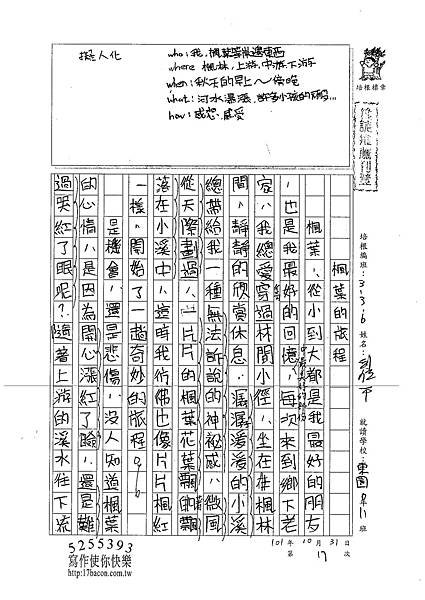 擬人化
who:我,楓葉等
where 楓林,上游,中游,下游
when:秋天的早上～傍晚
what:河水潺潺,許多小孩的
how:感想.感受
培根標章
楓葉的旅程
楓葉,從小到大都是我最好的朋友
,也是我最好的回憶,每次來到鄉下老
家,我總愛穿過林間小徑,坐在楓林
間,靜靜的欣賞休息,潺潺湲湲的小溪
總帶給我一種無法訴說的神祕感,微風
從天際劃過,一片片的楓葉花葉飄飄的
落在小溪中,這時我彷彿也像片片楓紅
一樣,開始了一趟奇妙的旅程。
是機會,還是悲傷,沒人知道楓葉
的心情,是因為開心漲紅了臉,還是難
過哭紅了眼呢?隨著上游的溪水往下流
培根編班:3.3.6 姓名:
就讀學校:東園 班
101年10月31日
第17次
5255393
寫作使你快樂
http://17bacon.com.tw